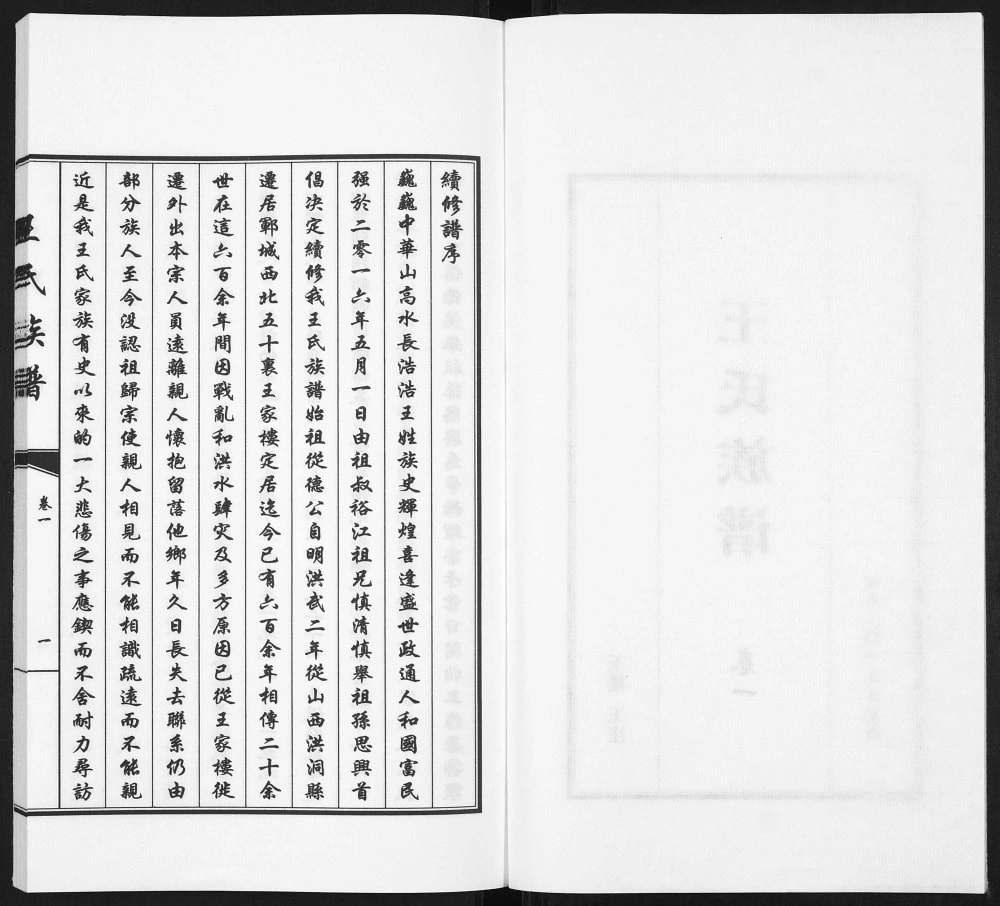 續修譜序
巍巍中華山高水長浩浩王姓族史輝煌喜逢盛世政通人和國富民
强於二零一六年五月一日由祖叔裕江祖兄慎清慎舉祖孫思興首
倡决定續修我王氏族譜始祖從德公自明洪武二年從山西洪洞縣
遷居鄆城西北五十裏王家樓定居迄今已有六百余年相傳二十余
世在這六百余年間因戰亂和洪水肆灾及多方原因已從王家樓徙
遷外出本宗人員遠離親人懷抱留落他鄉年久日長失去聯系仍由
部分族人至今没認祖歸宗使親人相見而不能相識疏遠而不能親
近是我王氏家族有史以來的一大悲傷之事應鍥而不舍耐力尋訪
王氏族譜
卷一
一
王氏族譜
卷一